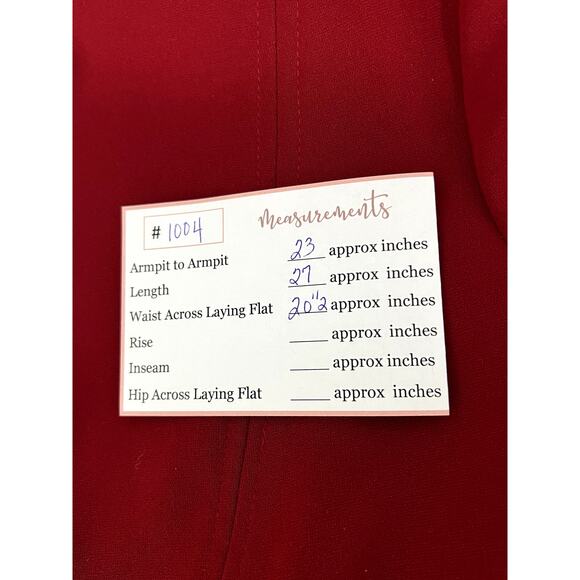 # 1004
Measurements
Armpit to Armpit 23 approx inches
Length 27 approx inches
Waist Across Laying Flat 20"2 approx inches
Rise ____ approx inches
Inseam ____ approx inches
Hip Across Laying Flat ____ approx inches